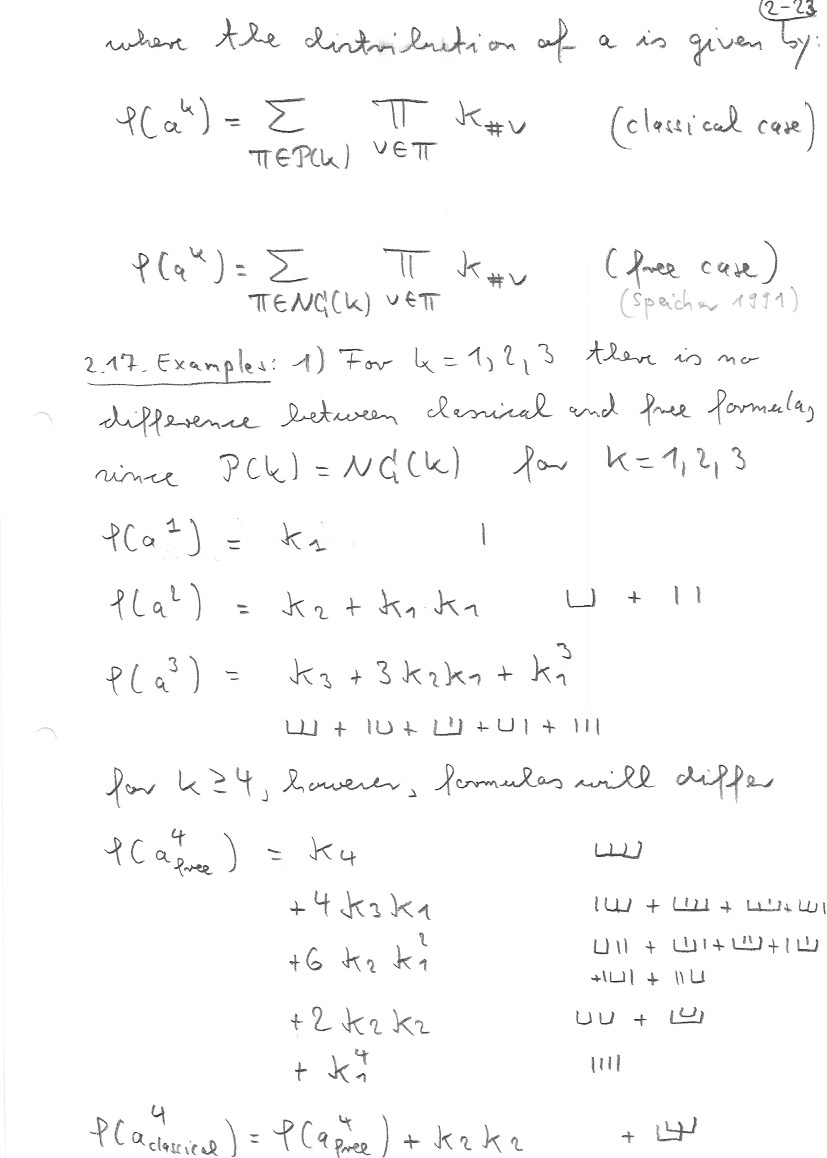 2-23
where the distribution of a is given by:
φ(a^k) = Σ_{π∈P(k)} Π_{V∈π} κ_{#V} (classical case)
φ(a^k) = Σ_{π∈NC(k)} Π_{V∈π} κ_{#V} (free case)
(Speicher 1991)
2.17. Examples: 1) For k = 1, 2, 3 there is no
difference between classical and free formulas,
since P(k) = NC(k) for k = 1, 2, 3
φ(a^1) = κ_1 |
φ(a^2) = κ_2 + κ_1 κ_1 ⊔ + | |
φ(a^3) = κ_3 + 3 κ_2 κ_1 + κ_1^3
+ + + + |||
for k ≥ 4, however, formulas will differ
φ(a_free^4) = κ_4
+ 4 κ_3 κ_1
+ 6 κ_2 κ_1^2
+ 2 κ_2 κ_2
+ κ_1^4 ||||
φ(a_classical^4) = φ(a_free^4) + κ_2 κ_2 +